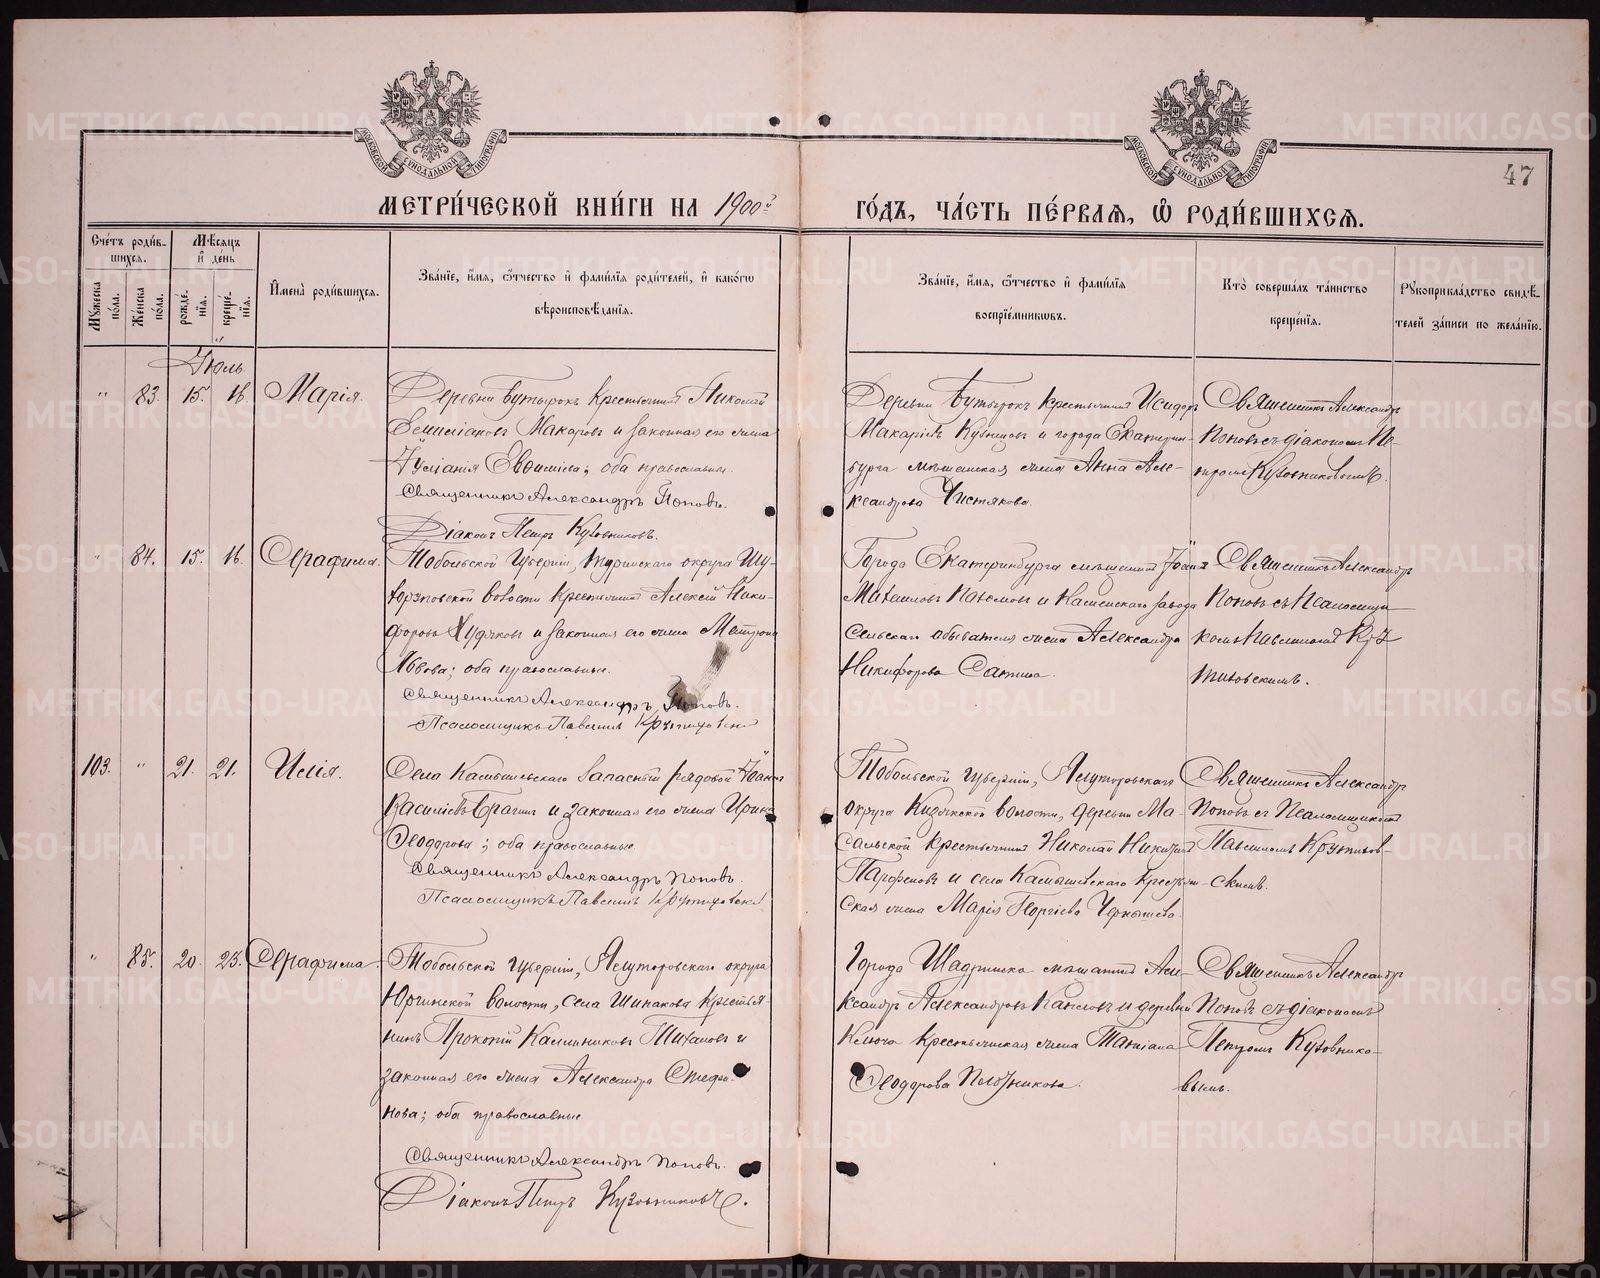 МОСКОВСКОЙ СѴНОДАЛЬНОЙ ТИПОГРАФІИ
МОСКОВСКОЙ СѴНОДАЛЬНОЙ ТИПОГРАФІИ
47
МЕТРИ́ЧЕСКОЙ КНИ́ГИ НА 1900й
ГО́ДЪ, ЧА́СТЬ ПЕ́РВАѦ, Ѽ РОДИ́ВШИХСѦ.
Сче́тъ роди́в-
шихся.
Мѣ́сяцъ
и҆ де́нь
Мꙋ́жеска по́ла.
Же́нска по́ла.
рожде́-нїѧ.
креще́-нїѧ.
И҆мена̀ роди́вшихсѧ.
Зва́нїе, и҆́мѧ, ѻ҆́тчество и҆ фами́лїѧ роди́телей, и҆ како́гѡ
вѣроисповѣ́данїѧ.
Зва́нїе, и҆́мѧ, ѻ҆́тчество и҆ фами́лїѧ
воспрїе́мникѡвъ.
Кто̀ соверша́лъ та́инство
креще́нїѧ.
Рꙋкоприкла́дство свидѣ́-
телей за́писи по жела́нїю.
Іюль
" 83. 15. 16. Марія.
Деревни Бутырокъ крестьянинъ Николай
Макаровъ и законная его жена
Іуліанія Евѳиміева; оба православные.
Священникъ Александръ Поповъ.
Діаконъ Петръ Кузовниковъ.
Деревни Бутырокъ крестьянинъ Исидоръ
Макаріевъ Кузнецовъ и города Екатерин-
бурга мѣщанская жена Анна Але-
ксандрова Чистякова.
Священникъ Александръ
Поповъ съ діакономъ Пе-
тромъ Кузовниковымъ.
" 84. 15. 16. Серафима.
Тобольской Губерніи, округа
волости крестьянинъ Алексій Ники-
форовъ Худяковъ и законная его жена Матрона
Львова; оба православные.
Священникъ Александръ Поповъ.
Псаломщикъ Павелъ Крутиховскій
Города Екатеринбурга мѣщанинъ Іоаннъ
Михаиловъ и Каменскаго завода
сельскаго обывателя жена Александра
Никифорова
Священникъ Александръ
Поповъ съ Псаломщи-
комъ Павломъ Кру-
тиховскимъ.
103. " 21. 21. Илія.
Села Камышевскаго запасный рядовой Іоаннъ
Василіевъ Брагинъ и законная его жена Ирина
Ѳеодорова; оба православные.
Священникъ Александръ Поповъ.
Псаломщикъ Павелъ Крутиховскій
Тобольской губерніи, Ялуторовскаго
округа волости, деревни Ма-
сальской крестьянинъ Николай Никитинъ
Парфеновъ и села Камышевскаго крестьян-
ская жена Марія Георгіева Чернышева.
Священникъ Александръ
Поповъ съ Псаломщикомъ
Павломъ Крутихов-
скимъ.
" 85. 20. 23. Серафима.
Тобольской губерніи, Ялуторовскаго округа
Юргинской волости, села Шипакова крестья-
нинъ Прокопій Калинниковъ Тихановъ и
законная его жена Александра Стефа-
нова; оба православные
Священникъ Александръ Поповъ.
Діаконъ Петръ Кузовниковъ.
Города Шадринска мѣщанинъ Але-
ксандръ Александровъ и деревни
Ключа крестьянская жена Татіана
Ѳеодорова
Священникъ Александръ
Поповъ съ діакономъ
Петромъ Кузовнико-
вымъ.
METRIKI.GASO-URAL.RU